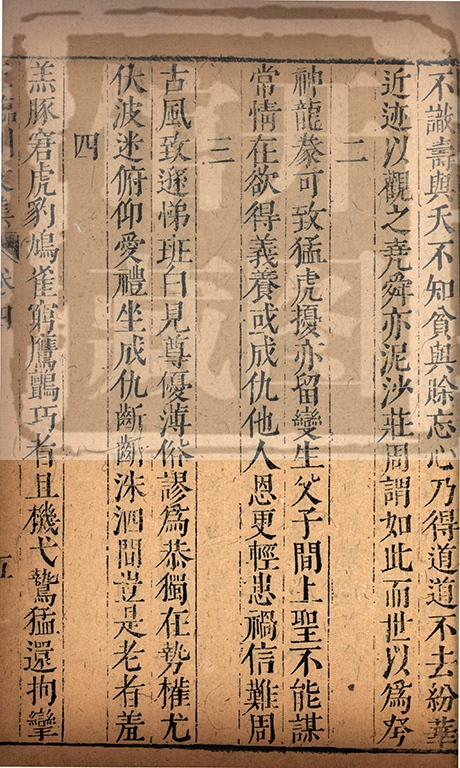 不識壽與夭不知貧與賒忘心乃得道道不去紛華
近迹以觀之堯舜亦泥沙莊周謂如此而世以為夸
二
神龍豢可致猛虎擾亦留變生父子間上聖不能謀
常情在欲得義養或成仇他人恩更輕患禍信難周
三
古風致遜悌班白見尊優薄俗謬為恭獨在勢權尤
伏波迷俯仰愛禮坐成仇齗齗洙泗間豈是老者羞
四
羔豚窘虎豹鳩雀窮鷹鸇巧者且機弋鷙猛還拘攣
五